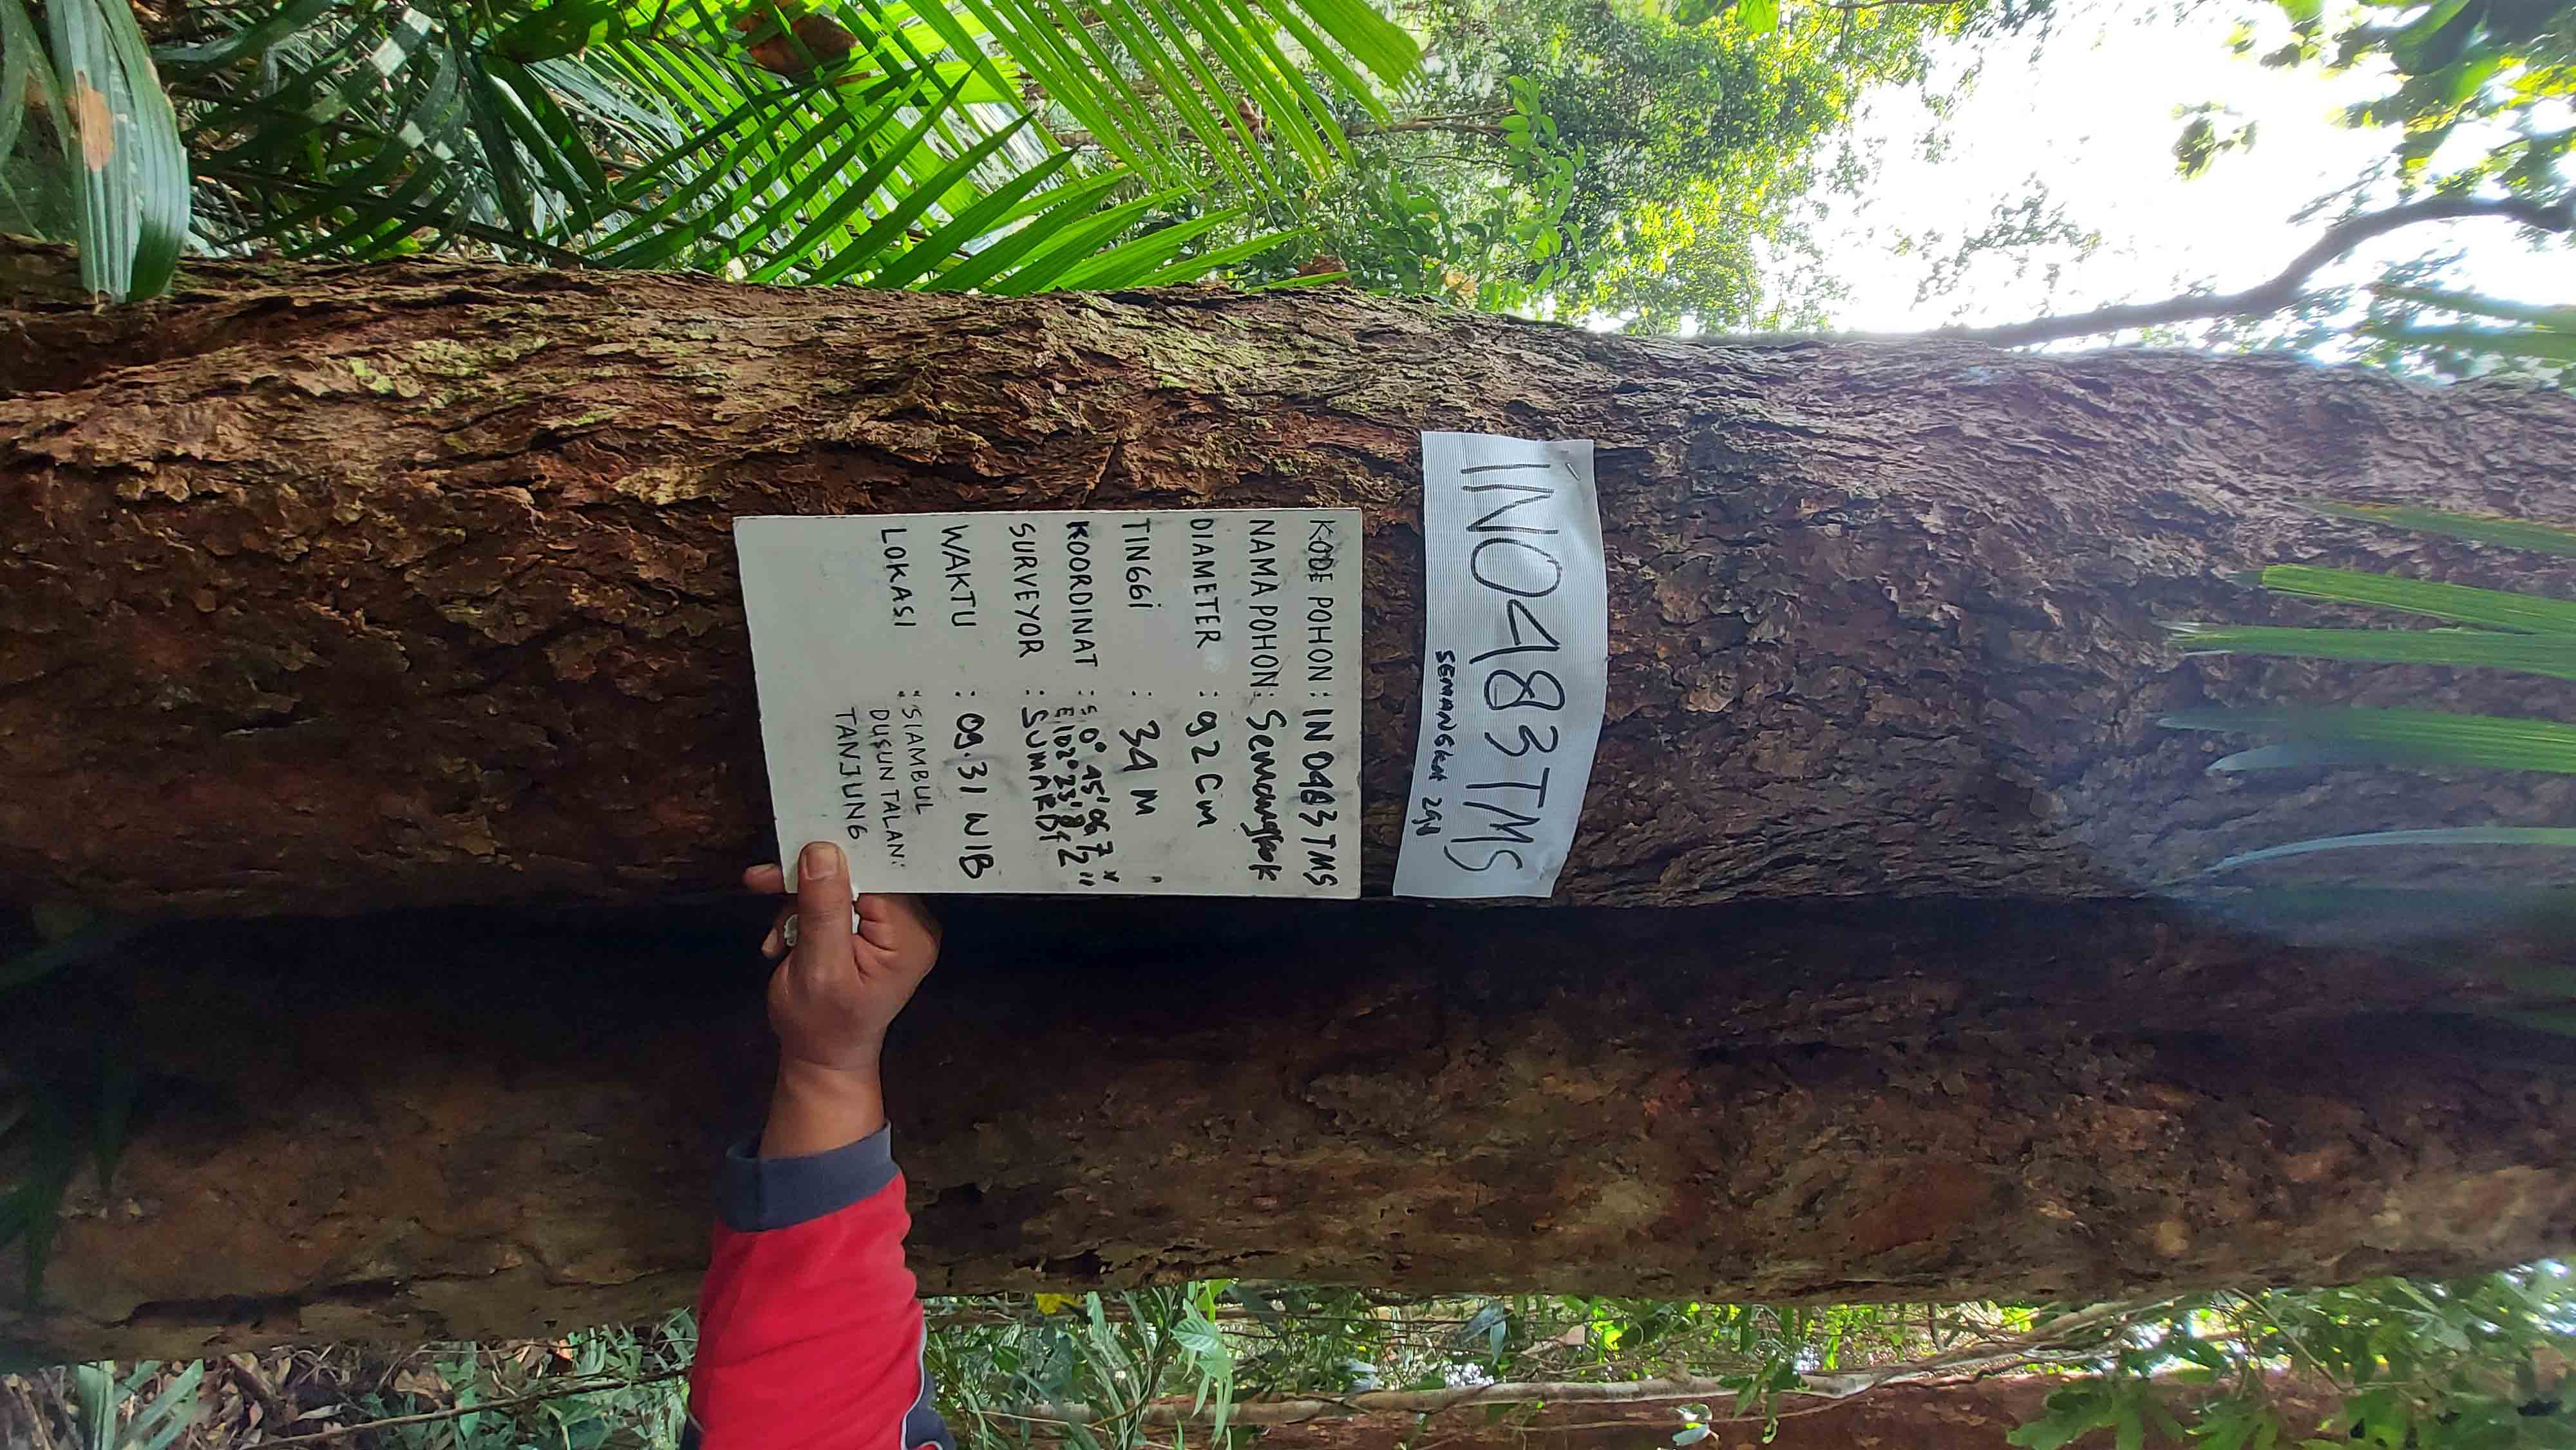 IN0483TMS
SEMANGKOK 291
KODE POHON : IN 0483 TMS
NAMA POHON : Semangkok
DIAMETER : 92 Cm
TINGGI : 34 M
KOORDINAT : S 0° 45' 067"
E 102° 23' 2"
SURVEYOR : SUMARDI
WAKTU : 09.31 WIB
LOKASI : SIAMBUL
DUSUN TALAN:
TANJUNG